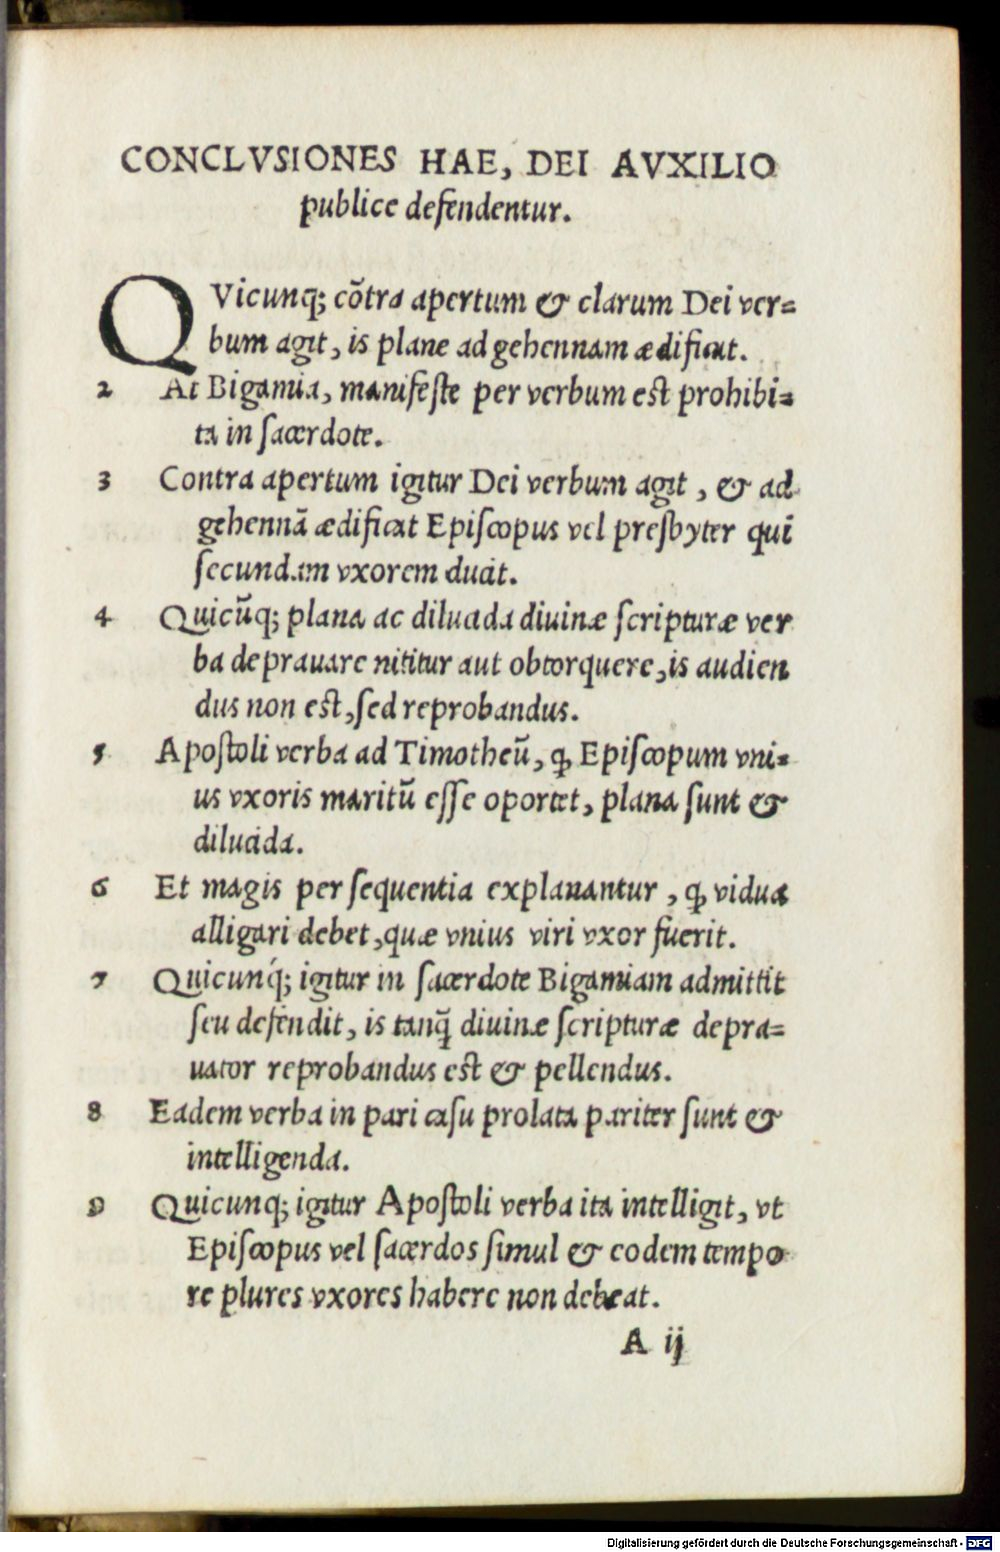 CONCLVSIONES HAE, DEI AVXILIO
publice defendentur.
QVicunq; cõtra apertum & clarum Dei ver=
bum agit, is plane ad gehennam ædificat.
2 At Bigamia, manifeste per verbum est prohibi=
ta in sacerdote.
3 Contra apertum igitur Dei verbum agit, & ad
gehennã ædificat Episcopus vel presbyter qui
secundam vxorem ducit.
4 Quicũq; plana ac dilucida diuinæ scripturæ ver
ba deprauare nititur aut obtorquere, is audien
dus non est, sed reprobandus.
5 Apostoli verba ad Timotheũ, ꝙ Episcopum vni=
us vxoris maritũ esse oportet, plana sunt &
dilucida.
6 Et magis per sequentia explanantur, ꝙ vidua
alligari debet, quæ vnius viri vxor fuerit.
7 Quicunq́; igitur in sacerdote Bigamiam admittit
seu defendit, is tanq̃ diuinæ scripturæ depra=
uator reprobandus est & pellendus.
8 Eadem verba in pari casu prolata pariter sunt &
intelligenda.
9 Quicunq; igitur Apostoli verba ita intelligit, vt
Episcopus vel sacerdos simul & eodem tempo
re plures vxores habere non debeat.
A ij
Digitalisierung gefördert durch die Deutsche Forschungsgemeinschaft - DFG